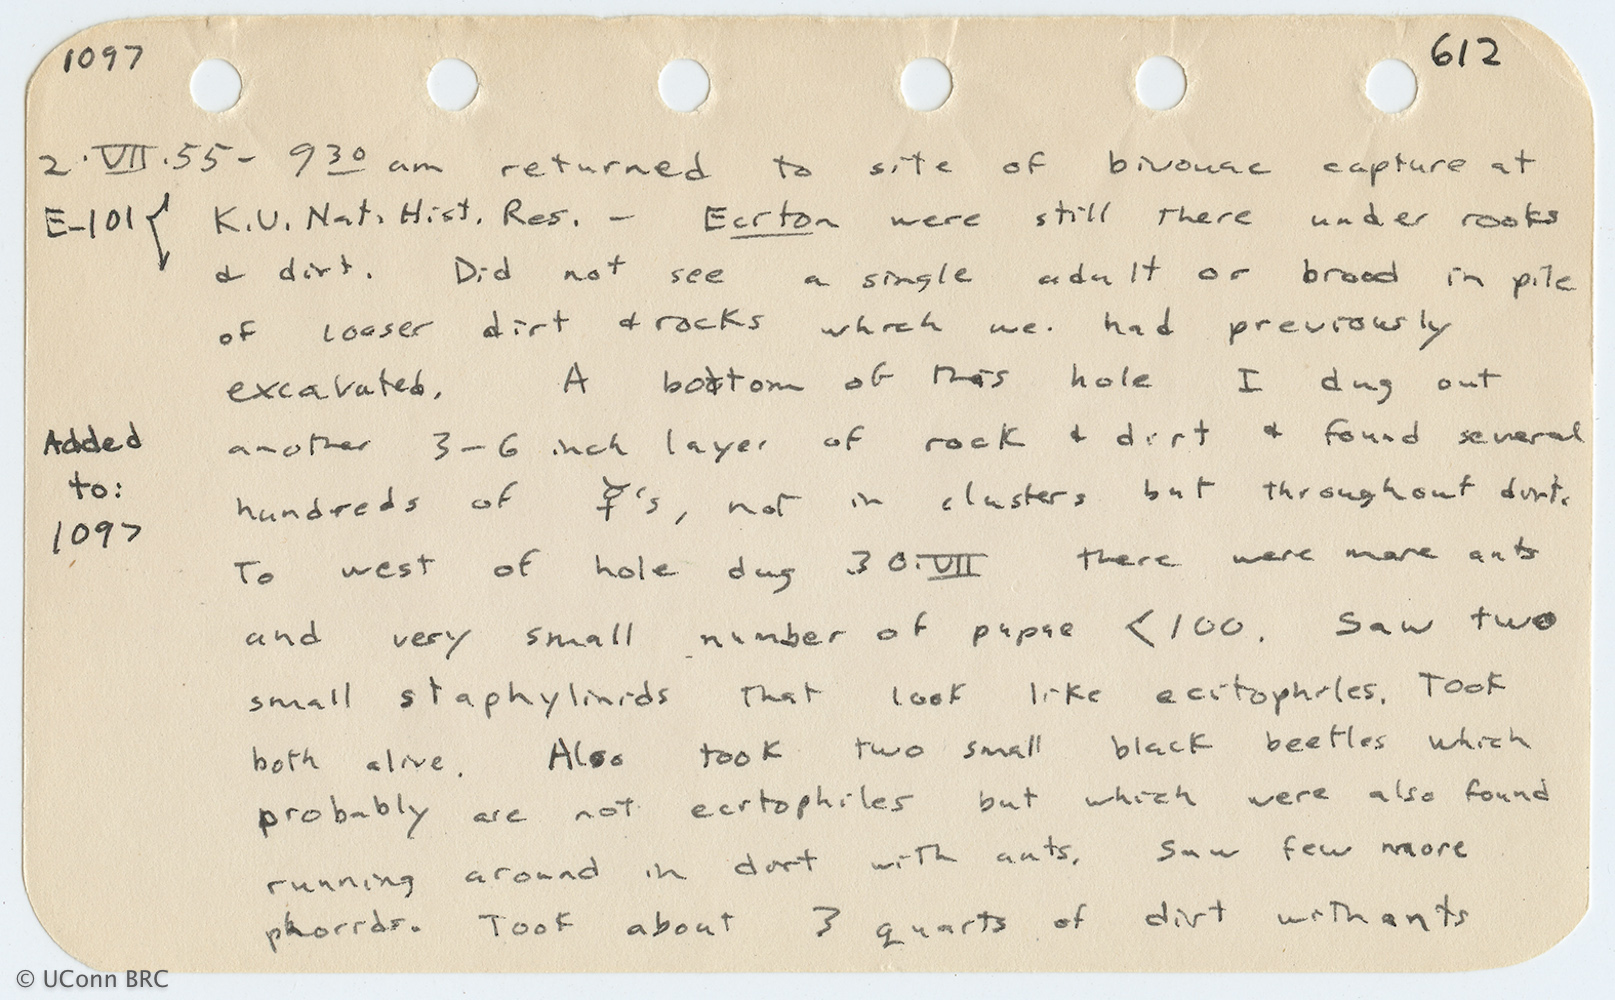 1097
612
2·VII·55- 9 30 am returned to site of bivouac capture at
E-101 { K.U. Nat. Hist. Res. - Eciton were still there under rocks
& dirt. Did not see a single adult or brood in pile
of looser dirt & rocks which we had previously
excavated. A bottom of this hole I dug out
Added another 3-6 inch layer of rock & dirt & found several
to: hundreds of ☿'s, not in clusters but throughout dirt.
1097 To west of hole dug 30·VII there were more ants
and very small number of pupae <100. Saw two
small staphylinids that look like ecitophiles. Took
both alive. Also took two small black beetles which
probably are not ecitophiles but which were also found
running around in dirt with ants. Saw few more
phorids. Took about 3 quarts of dirt with ants
© UConn BRC